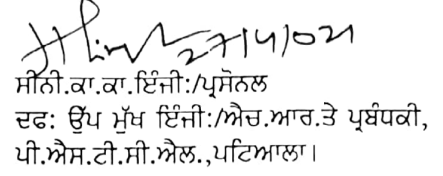 27/4/2021
ਸੀਨੀ.ਕਾ.ਕਾ.ਇੰਜੀ:/ਪ੍ਰਸੋਨਲ
ਦਫ: ਉੱਪ ਮੁੱਖ ਇੰਜੀ:/ਐਚ.ਆਰ.ਤੇ ਪ੍ਰਬੰਧਕੀ,
ਪੀ.ਐਸ.ਟੀ.ਸੀ.ਐਲ.,ਪਟਿਆਲਾ।